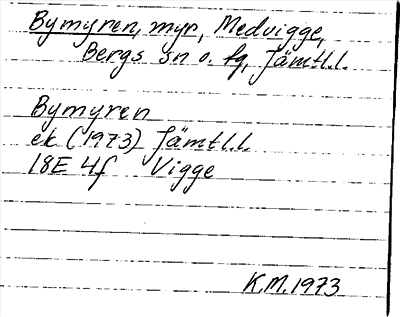 Bymyren, myr, Medvigge,
Bergs sn o. fg, Jämtl.l.
Bymyren
ek (1973) Jämtl.l.
18E 4f Vigge
K.M. 1973